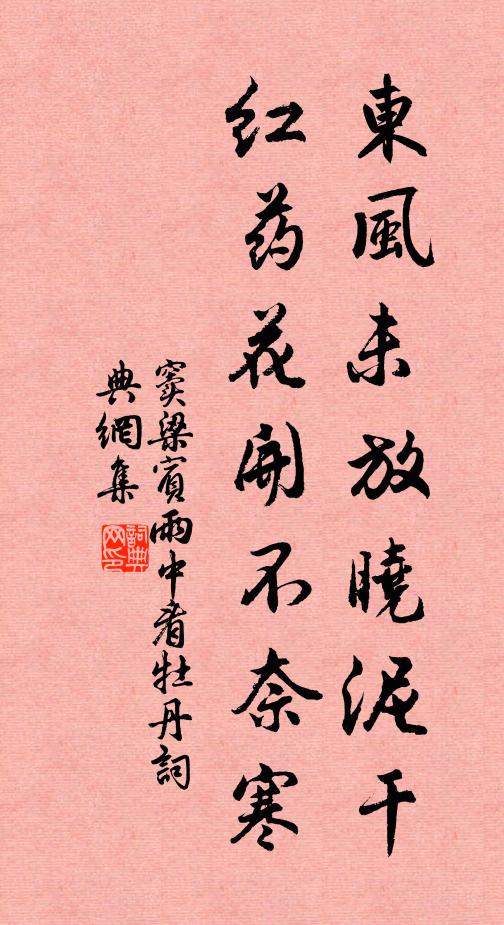 東風未放曉泥干
红药花開不奈寒
窦梁賓雨中看牡丹詞
典網集
詞典网印